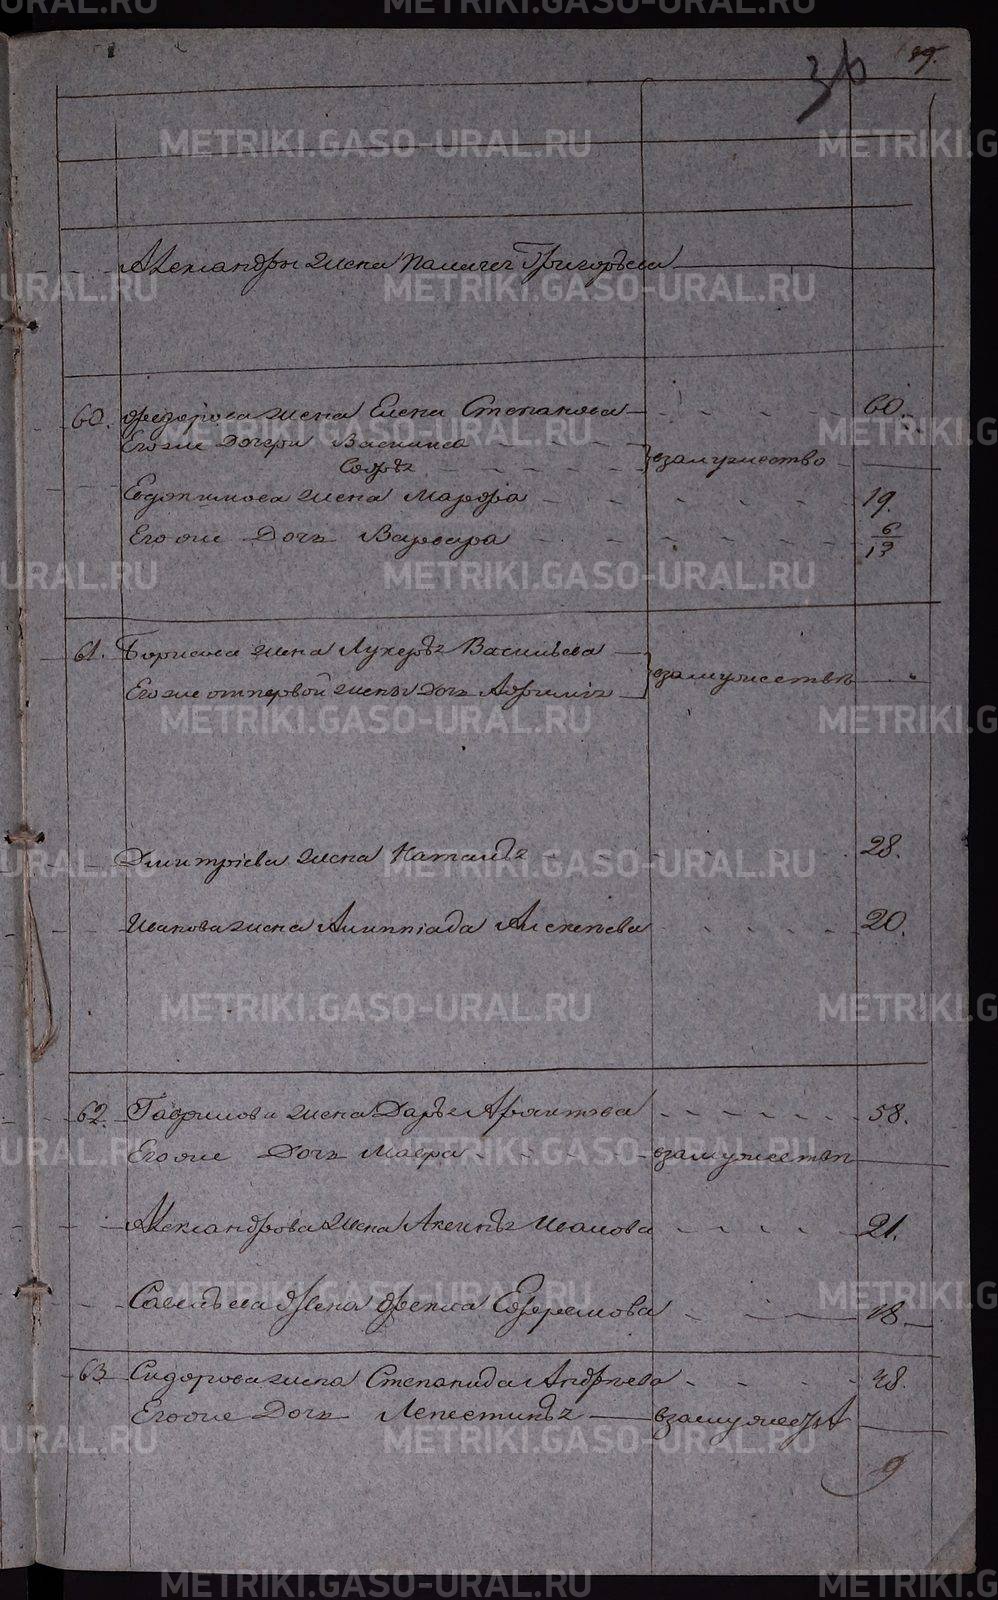 29.
36
Александры жена Пелагея Григорьева
60. Федорова жена Елена Степанова 60.
Егоже дочери Василиса
Софья взамужество
Евдокимова жена Марфа 19.
Егоже Дочь Варвара 6/13
61. Борисова жена Лукерья Васильева
Егоже отпервой жены дочь Афимия взамужестве
Дмитріева жена Наталья 28.
Иванова жена Алимпіада Алексеева 20.
62. Гаврилова жена Дарья 58.
Егоже Дочь Мавра взамужестве
Александрова жена Аксинья Иванова 21.
Савельева жена Фекла Ефремова 18.
63 Сидорова жена Степанида Андреева 48.
Егоже Дочь Лепестинья взамужест
9
METRIKI.GASO-URAL.RU